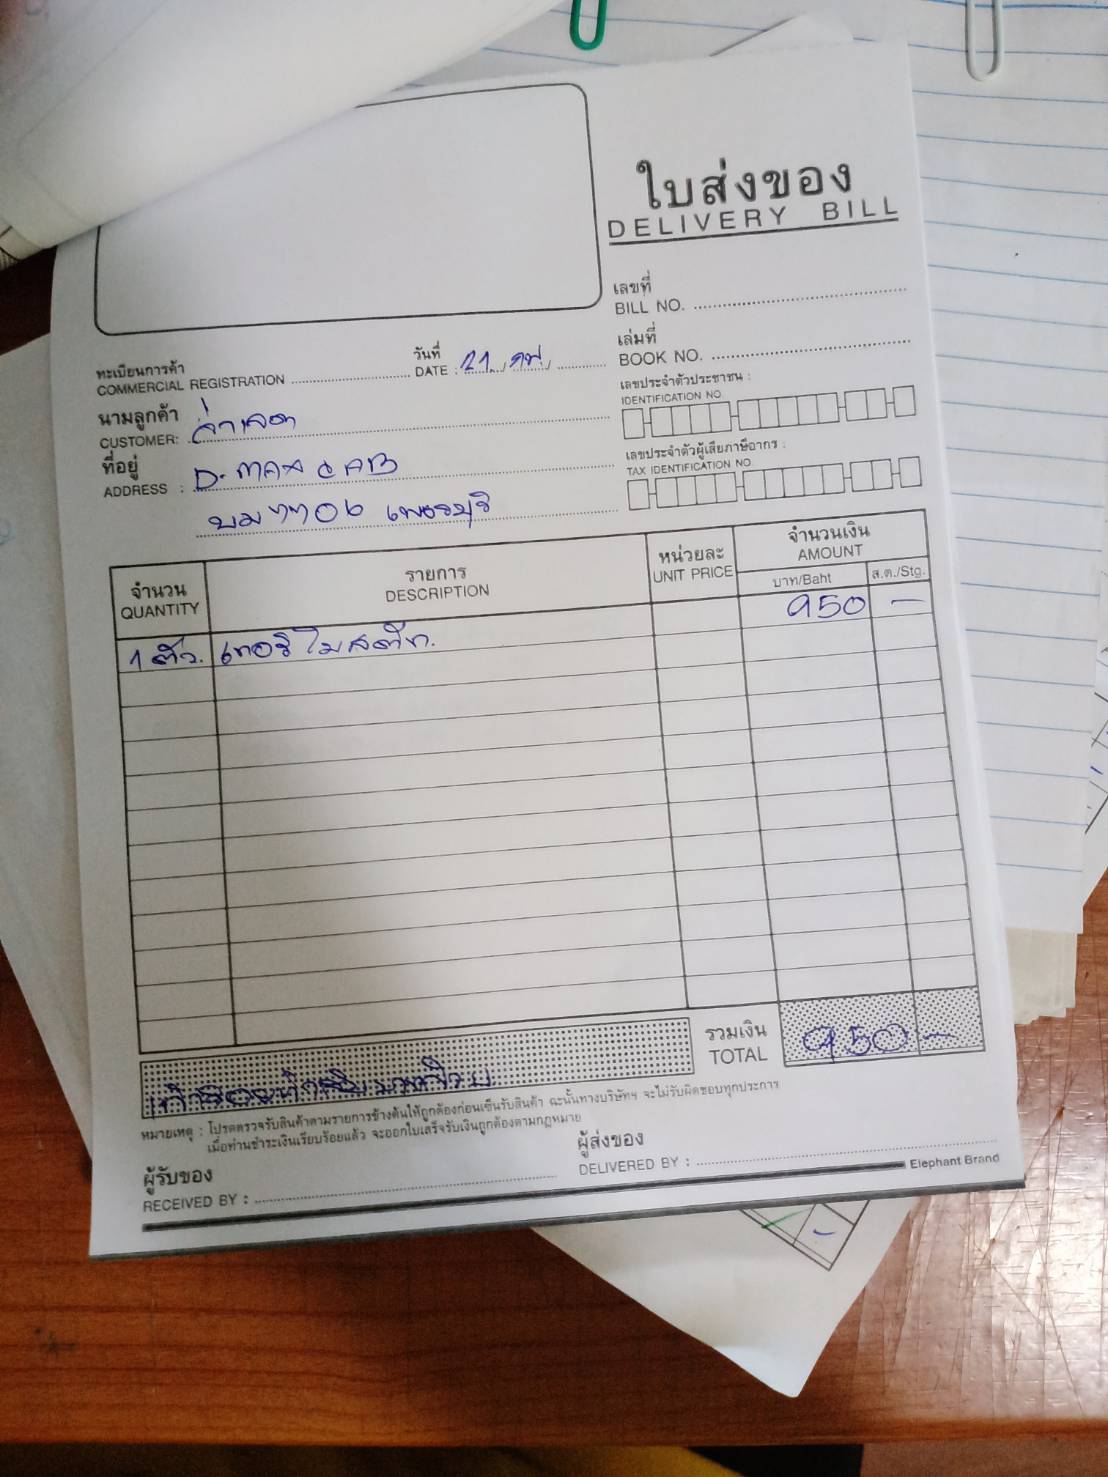 ใบส่งของ
DELIVERY BILL
เลขที่
BILL NO.
เล่มที่
BOOK NO.
ทะเบียนการค้า
COMMERCIAL REGISTRATION
วันที่
DATE : 21 กพ.
เลขประจำตัวประชาชน :
IDENTIFICATION NO.
นามลูกค้า
CUSTOMER:
ที่อยู่
ADDRESS : D-MAX CAB
เลขประจำตัวผู้เสียภาษีอากร :
TAX IDENTIFICATION NO.
บม 7706 เพชรบุรี
จำนวน
QUANTITY
รายการ
DESCRIPTION
หน่วยละ
UNIT PRICE
จำนวนเงิน
AMOUNT
บาท/Baht
ส.ต./Stg.
1 ตัว. เทอร์โมสตัท. 950 -
รวมเงิน
TOTAL
950 -
หมายเหตุ : โปรดตรวจรับสินค้าตามรายการข้างต้นให้ถูกต้องก่อนเซ็นรับสินค้า ฉะนั้นทางบริษัทฯ จะไม่รับผิดชอบทุกประการ
เมื่อท่านชำระเงินเรียบร้อยแล้ว จะออกใบเสร็จรับเงินถูกต้องตามกฎหมาย
ผู้รับของ
RECEIVED BY :
ผู้ส่งของ
DELIVERED BY :
Elephant Brand